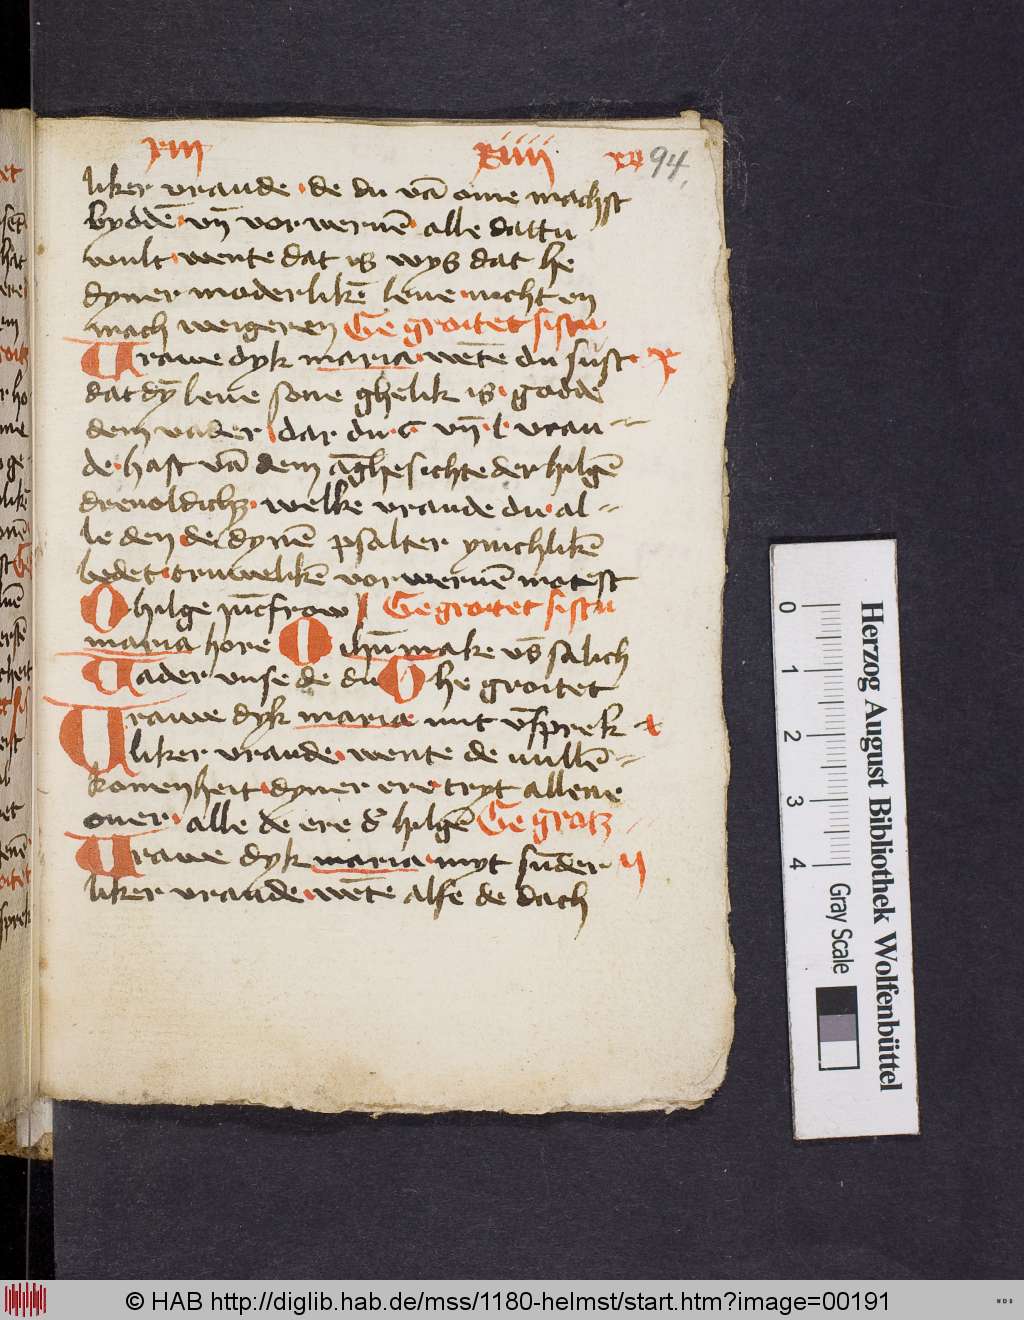 xiii xiiii xv 94
liker vraude · de du vā ome machst
byddē · vn̄ vorwernē · alle dattu
wult · wente dat is wys dat he
dyner moderlikē leue · nicht en
mach weigeren Gegroitet sistu
Urawe dyk maria · wēte du sust · x
dat dȳ leue sone ghelik is · godde
dem vader · dar du · c · vn̄ · l · vrau=
de · hast vā dem āghesichte der hilgē
dreuoldich · welke vraude du · al=
le den de dynē psalter ynichlikē
bedet · truwelikē vorwernē motest
O hilge iūcfrow Gegroitet sistu
maria hore O ihū make vs salich
Uader vnse de du Ghe groitet
Urawe dyk maria mit vsprek
liker vraude · wente de vullē=
komenheit · dyner ere tryt allene
ouer · alle de ere d' hilgē Ge grotz
Urawe dyk maria · myt sūder ii
liker vraude · wēte alse de dach
Herzog August Bibliothek Wolfenbüttel
0 1 2 3 4 Gray Scale
© HAB http://diglib.hab.de/mss/1180-helmst/start.htm?image=00191